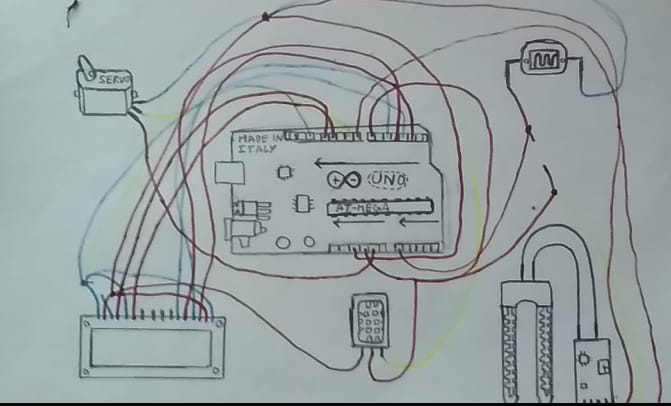 SERVO
MADE IN
ITALY
UNO
AT-MEGA